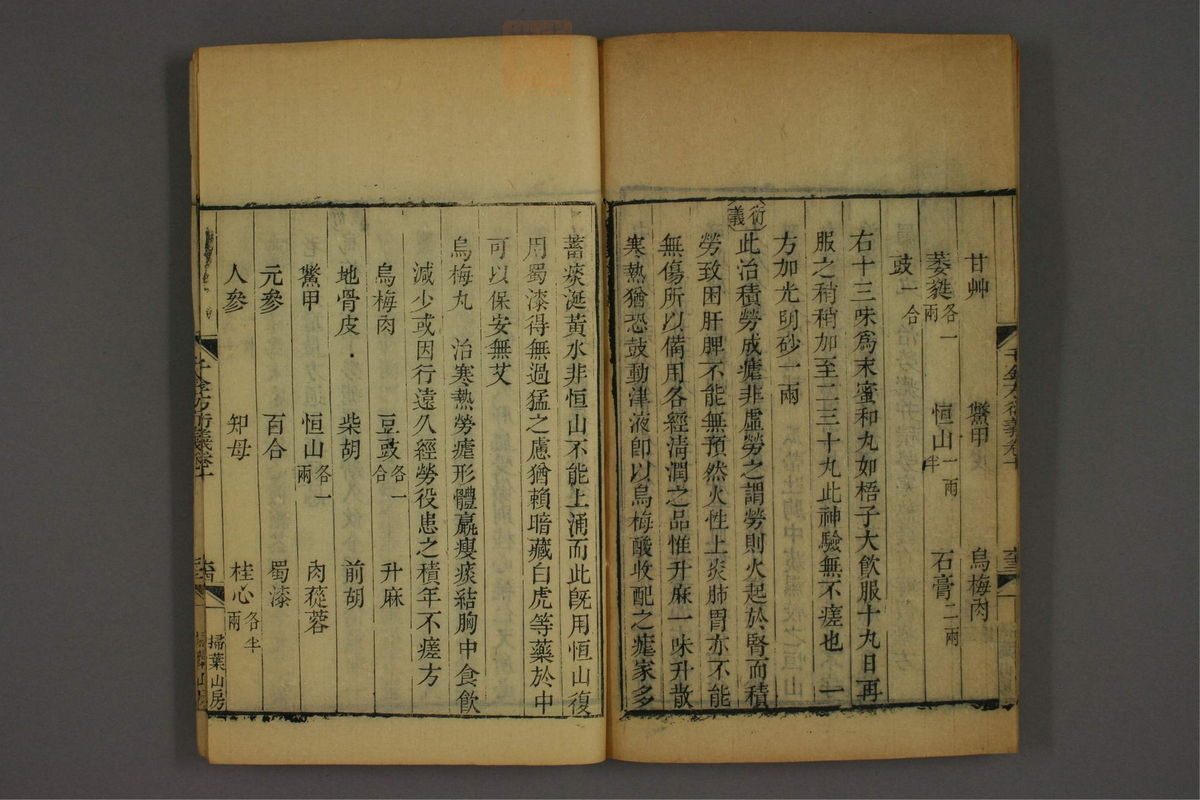 甘艸 鱉甲 烏梅肉
萎蕤各一兩 恒山一兩半 石膏二兩
豉一合
右十三味爲末蜜和丸如梧子大飲服十丸日再
服之稍稍加至二三十丸此神驗無不瘥也 一
方加光明砂一兩
衍義
此治積勞成瘧非虛勞之謂勞則火起於腎而積
勞致困肝脾不能無預然火性上炎肺胃亦不能
無傷所以備用各經清潤之品惟升麻一味升散
寒熱猶恐鼓動津液卽以烏梅酸收配之瘧家多
蓄痰涎黃水非恒山不能上涌而此旣用恒山復
用蜀漆得無過猛之慮猶賴暗藏白虎等藥於中
可以保安無艾
烏梅丸 治寒熱勞瘧形體羸瘦痰結胸中食飲
減少或因行遠久經勞役患之積年不瘥方
烏梅肉 豆豉各一合 升麻
地骨皮 柴胡 前胡
鱉甲 恒山各一兩 肉蓯蓉
元參 百合 蜀漆
人參 知母 桂心各半兩
千金方衍義卷十
掃葉山房